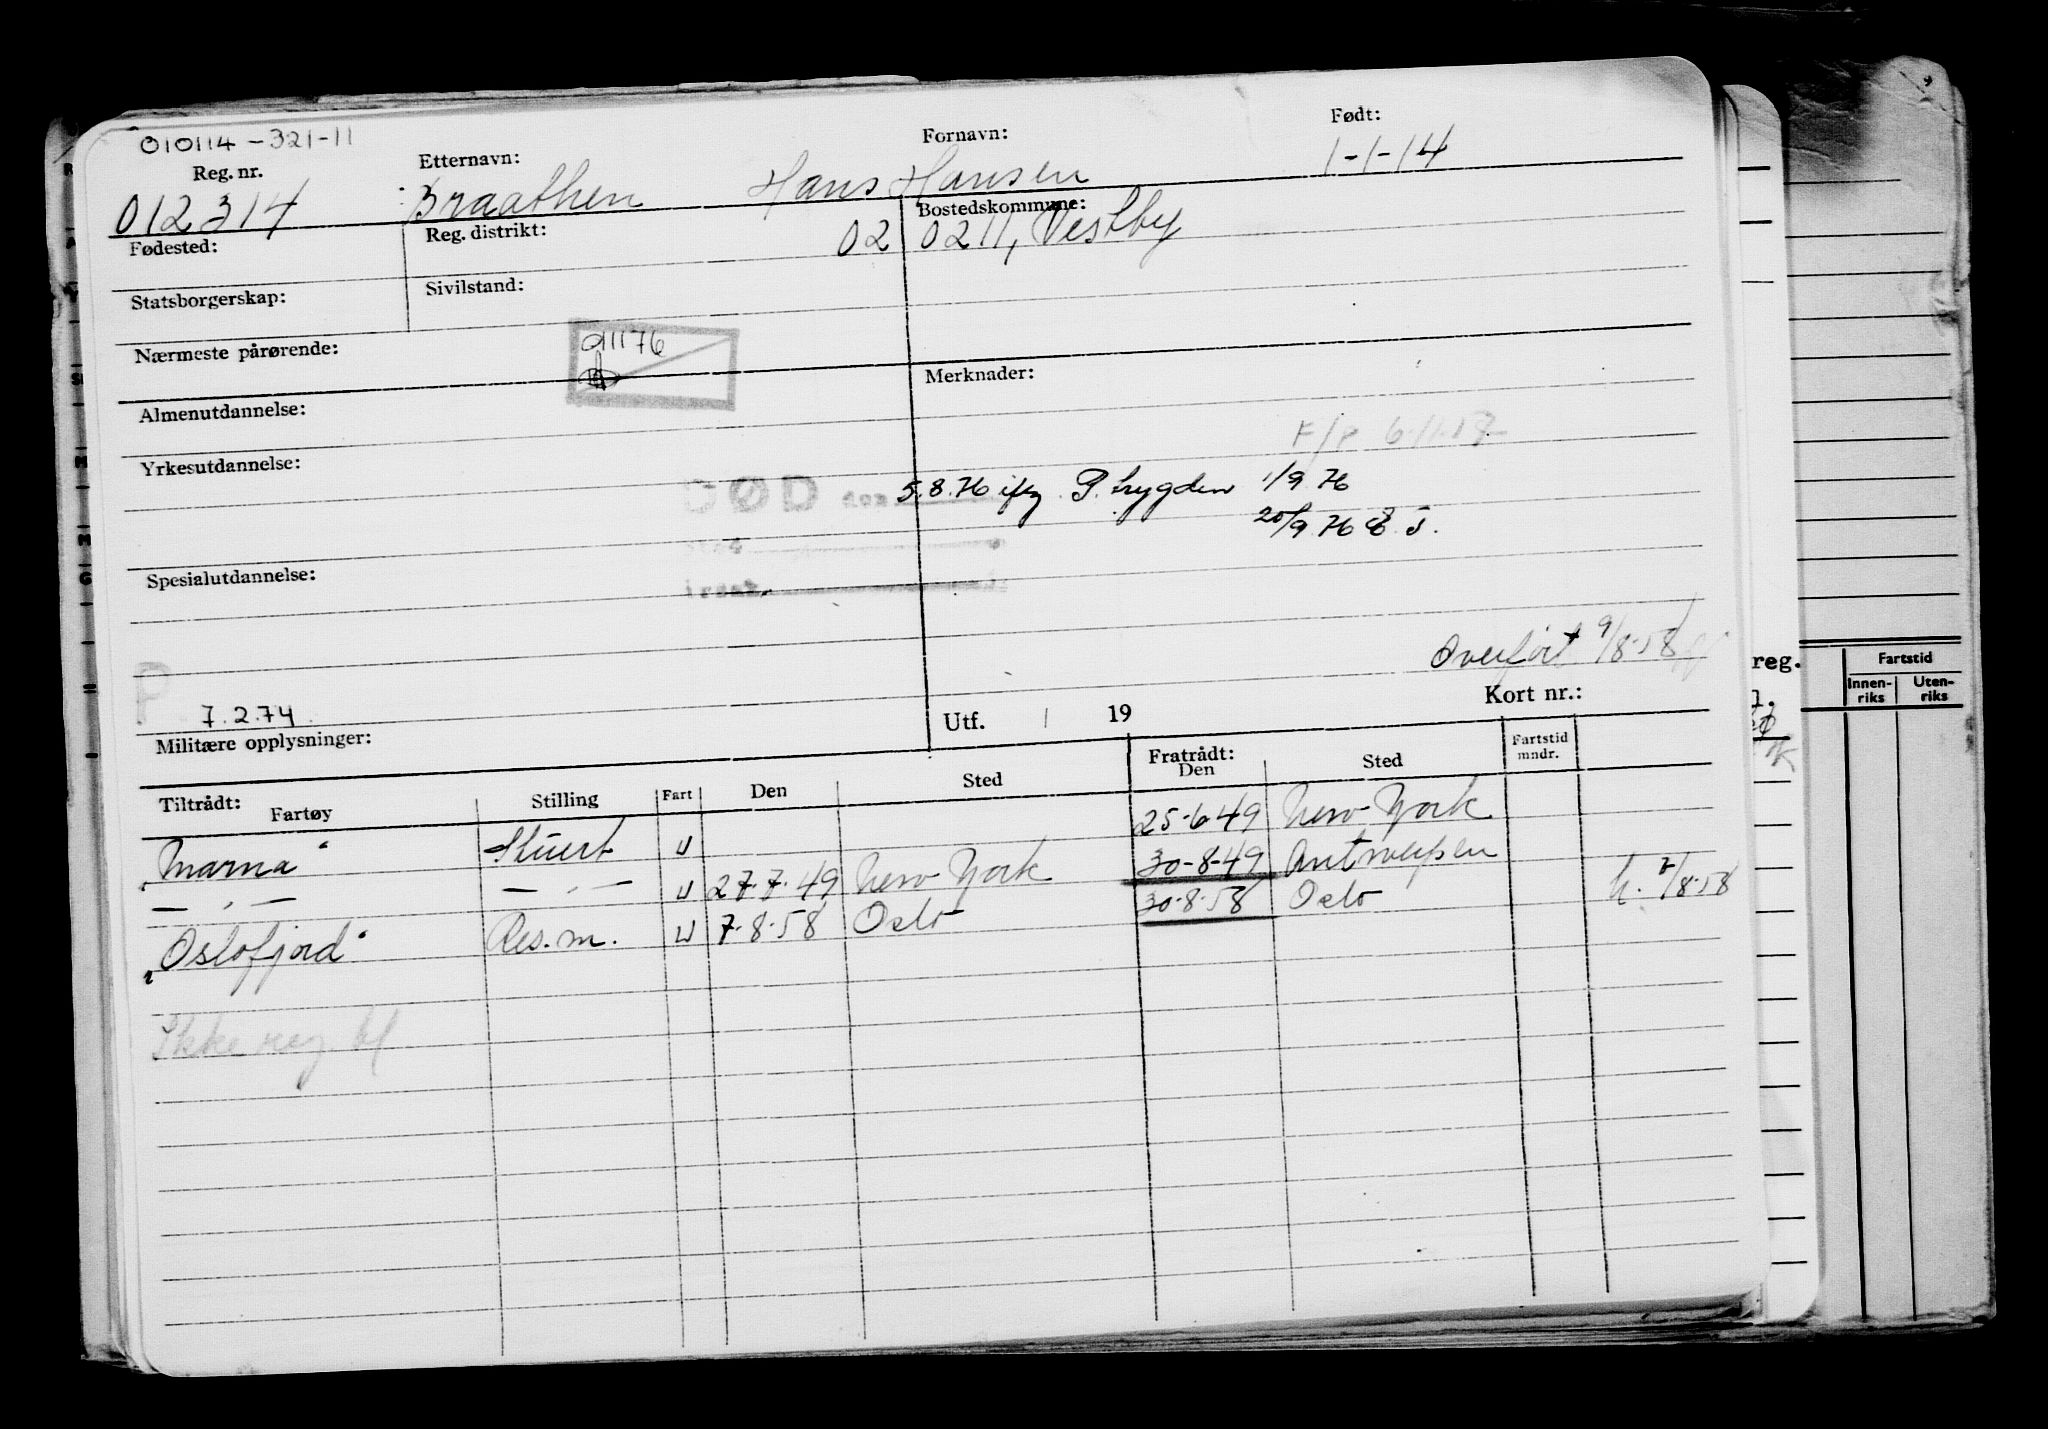 010114-321-11
Reg. nr. Etternavn: Fornavn: Født:
012314 Braathen Hans Hansen 1-1-14
Fødested: Reg. distrikt: 02 Bostedskommune: 0211, Vestby
Statsborgerskap: Sivilstand:
Nærmeste pårørende: 011176
Almenutdannelse: Merknader:
F/P 6.11.17
Yrkesutdannelse:
DØD den 5.8.76 iflg. P. trygden 1/9 76
Sted 20/9 76
Spesialutdannelse:
Overført 9/8-58
P
7.2.74
Militære opplysninger: Utf. 1 19 Kort nr.:
Tiltrådt: Fratrådt:
Fartøy Stilling Fart Den Sted Den Sted Fartstid mndr.
"Marna" Stuert U 25-6-49 New York
— " — — " — U 27-7-49 New York 30-8-49 Antwerpen
"Oslofjord" Res. m. U 7-8-58 Oslo 30-8-58 Oslo h. 7/8-58
Ikke reg. bl
reg.
Fartstid
Innenriks Utenriks